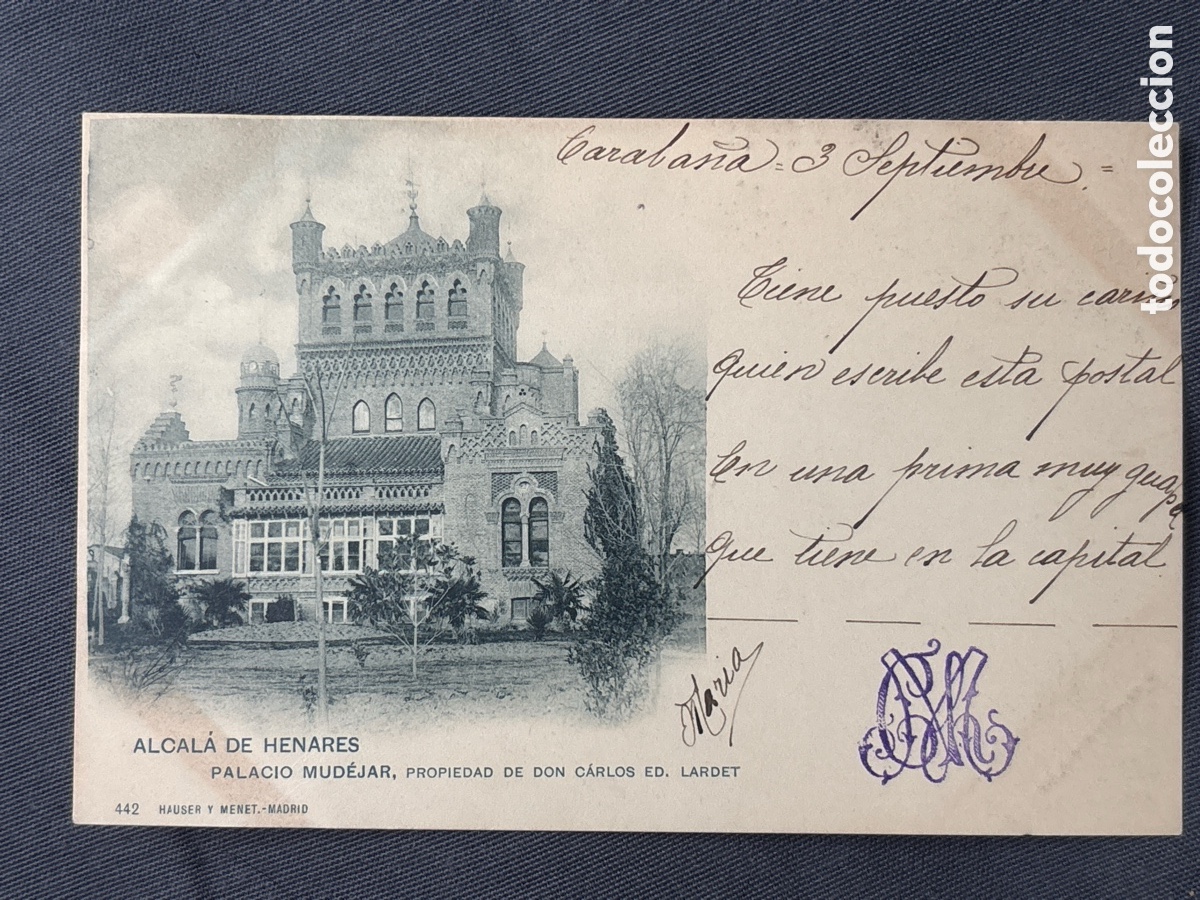 Carabaña = 3 Septiembre =
Tiene puesto su cariño
quien escribe esta postal
En una prima muy guapa
que tiene en la capital
Maria
ALCALÁ DE HENARES
PALACIO MUDÉJAR, PROPIEDAD DE DON CÁRLOS ED. LARDET
442 HAUSER Y MENET.-MADRID
todocoleccion